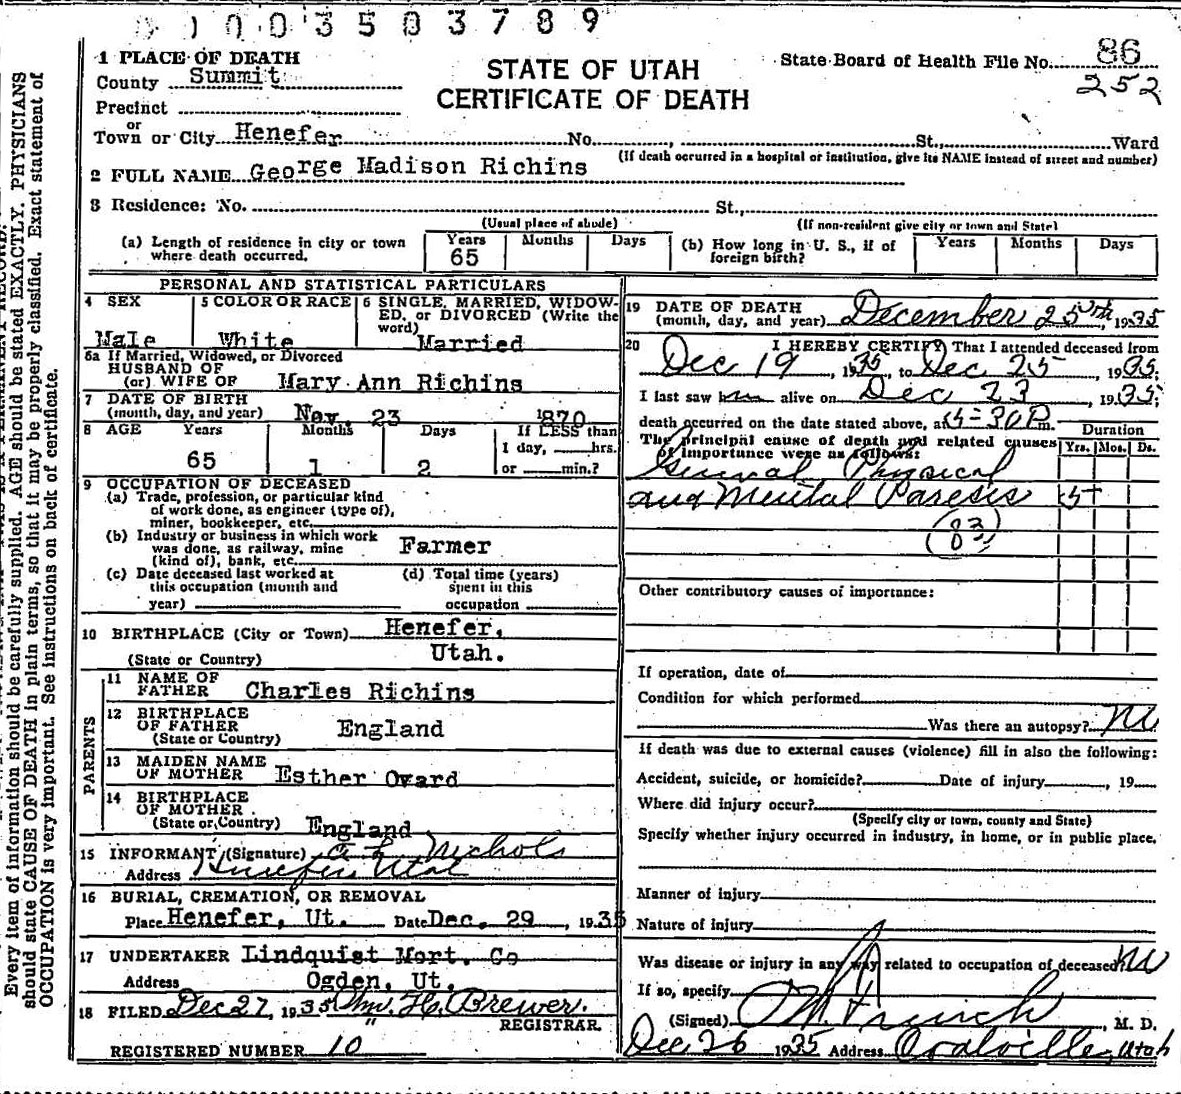 01003503789
1 PLACE OF DEATH
County Summit
STATE OF UTAH
CERTIFICATE OF DEATH
State Board of Health File No. 86
252
Precinct
or
Town or City Henefer No. , St., Ward
(If death occurred in a hospital or institution, give its NAME instead of street and number)
2 FULL NAME George Madison Richins
3 Residence: No. St.,
(Usual place of abode) (If non-resident give city or town and State)
(a) Length of residence in city or town where death occurred. Years 65 Months Days
(b) How long in U. S., if of foreign birth? Years Months Days
PERSONAL AND STATISTICAL PARTICULARS
4 SEX Male
5 COLOR OR RACE White
6 SINGLE, MARRIED, WIDOWED, or DIVORCED (Write the word) Married
6a If Married, Widowed, or Divorced
HUSBAND OF
(or) WIFE OF Mary Ann Richins
7 DATE OF BIRTH
(month, day, and year) Nov. 23 1870
8 AGE Years 65 Months 1 Days 2
If LESS than
1 day, hrs.
or min.?
9 OCCUPATION OF DECEASED
(a) Trade, profession, or particular kind
of work done, as engineer (type of),
miner, bookkeeper, etc.
(b) Industry or business in which work
was done, as railway, mine
(kind of), bank, etc. Farmer
(c) Date deceased last worked at
this occupation (month and
year)
(d) Total time (years)
spent in this
occupation
10 BIRTHPLACE (City or Town) Henefer,
(State or Country) Utah.
PARENTS
11 NAME OF
FATHER Charles Richins
12 BIRTHPLACE
OF FATHER England
(State or Country)
13 MAIDEN NAME
OF MOTHER Esther Ovard
14 BIRTHPLACE
OF MOTHER
(State or Country) England
15 INFORMANT (Signature) Nichols
Address Henefer Utah
16 BURIAL, CREMATION, OR REMOVAL
Place Henefer, Ut. Date Dec. 29, 1935
17 UNDERTAKER Lindquist Mort. Co
Address Ogden, Ut.
18 FILED Dec 27, 1935 Wm. H. Brewer.
REGISTRAR
REGISTERED NUMBER 10
19 DATE OF DEATH
(month, day, and year) December 25th, 1935
20 I HEREBY CERTIFY That I attended deceased from
Dec 19, 1935, to Dec 25, 1935;
I last saw him alive on Dec 23, 1935;
death occurred on the date stated above, at 30 P m.
The principal cause of death and related causes
of importance were as follows:
Duration
Yrs. Mos. Ds.
General Physical
and Mental Paresis 5+
(83)
Other contributory causes of importance:
If operation, date of
Condition for which performed
Was there an autopsy? No
If death was due to external causes (violence) fill in also the following:
Accident, suicide, or homicide? Date of injury , 19
Where did injury occur?
(Specify city or town, county and State)
Specify whether injury occurred in industry, in home, or in public place.
Manner of injury
Nature of injury
Was disease or injury in any way related to occupation of deceased No
If so, specify
(Signed) , M. D.
Dec 26 1935 Address Coalville, Utah
Every item of information should be carefully supplied. AGE should be stated EXACTLY. PHYSICIANS
should state CAUSE OF DEATH in plain terms, so that it may be properly classified. Exact statement of
OCCUPATION is very important. See instructions on back of certificate.